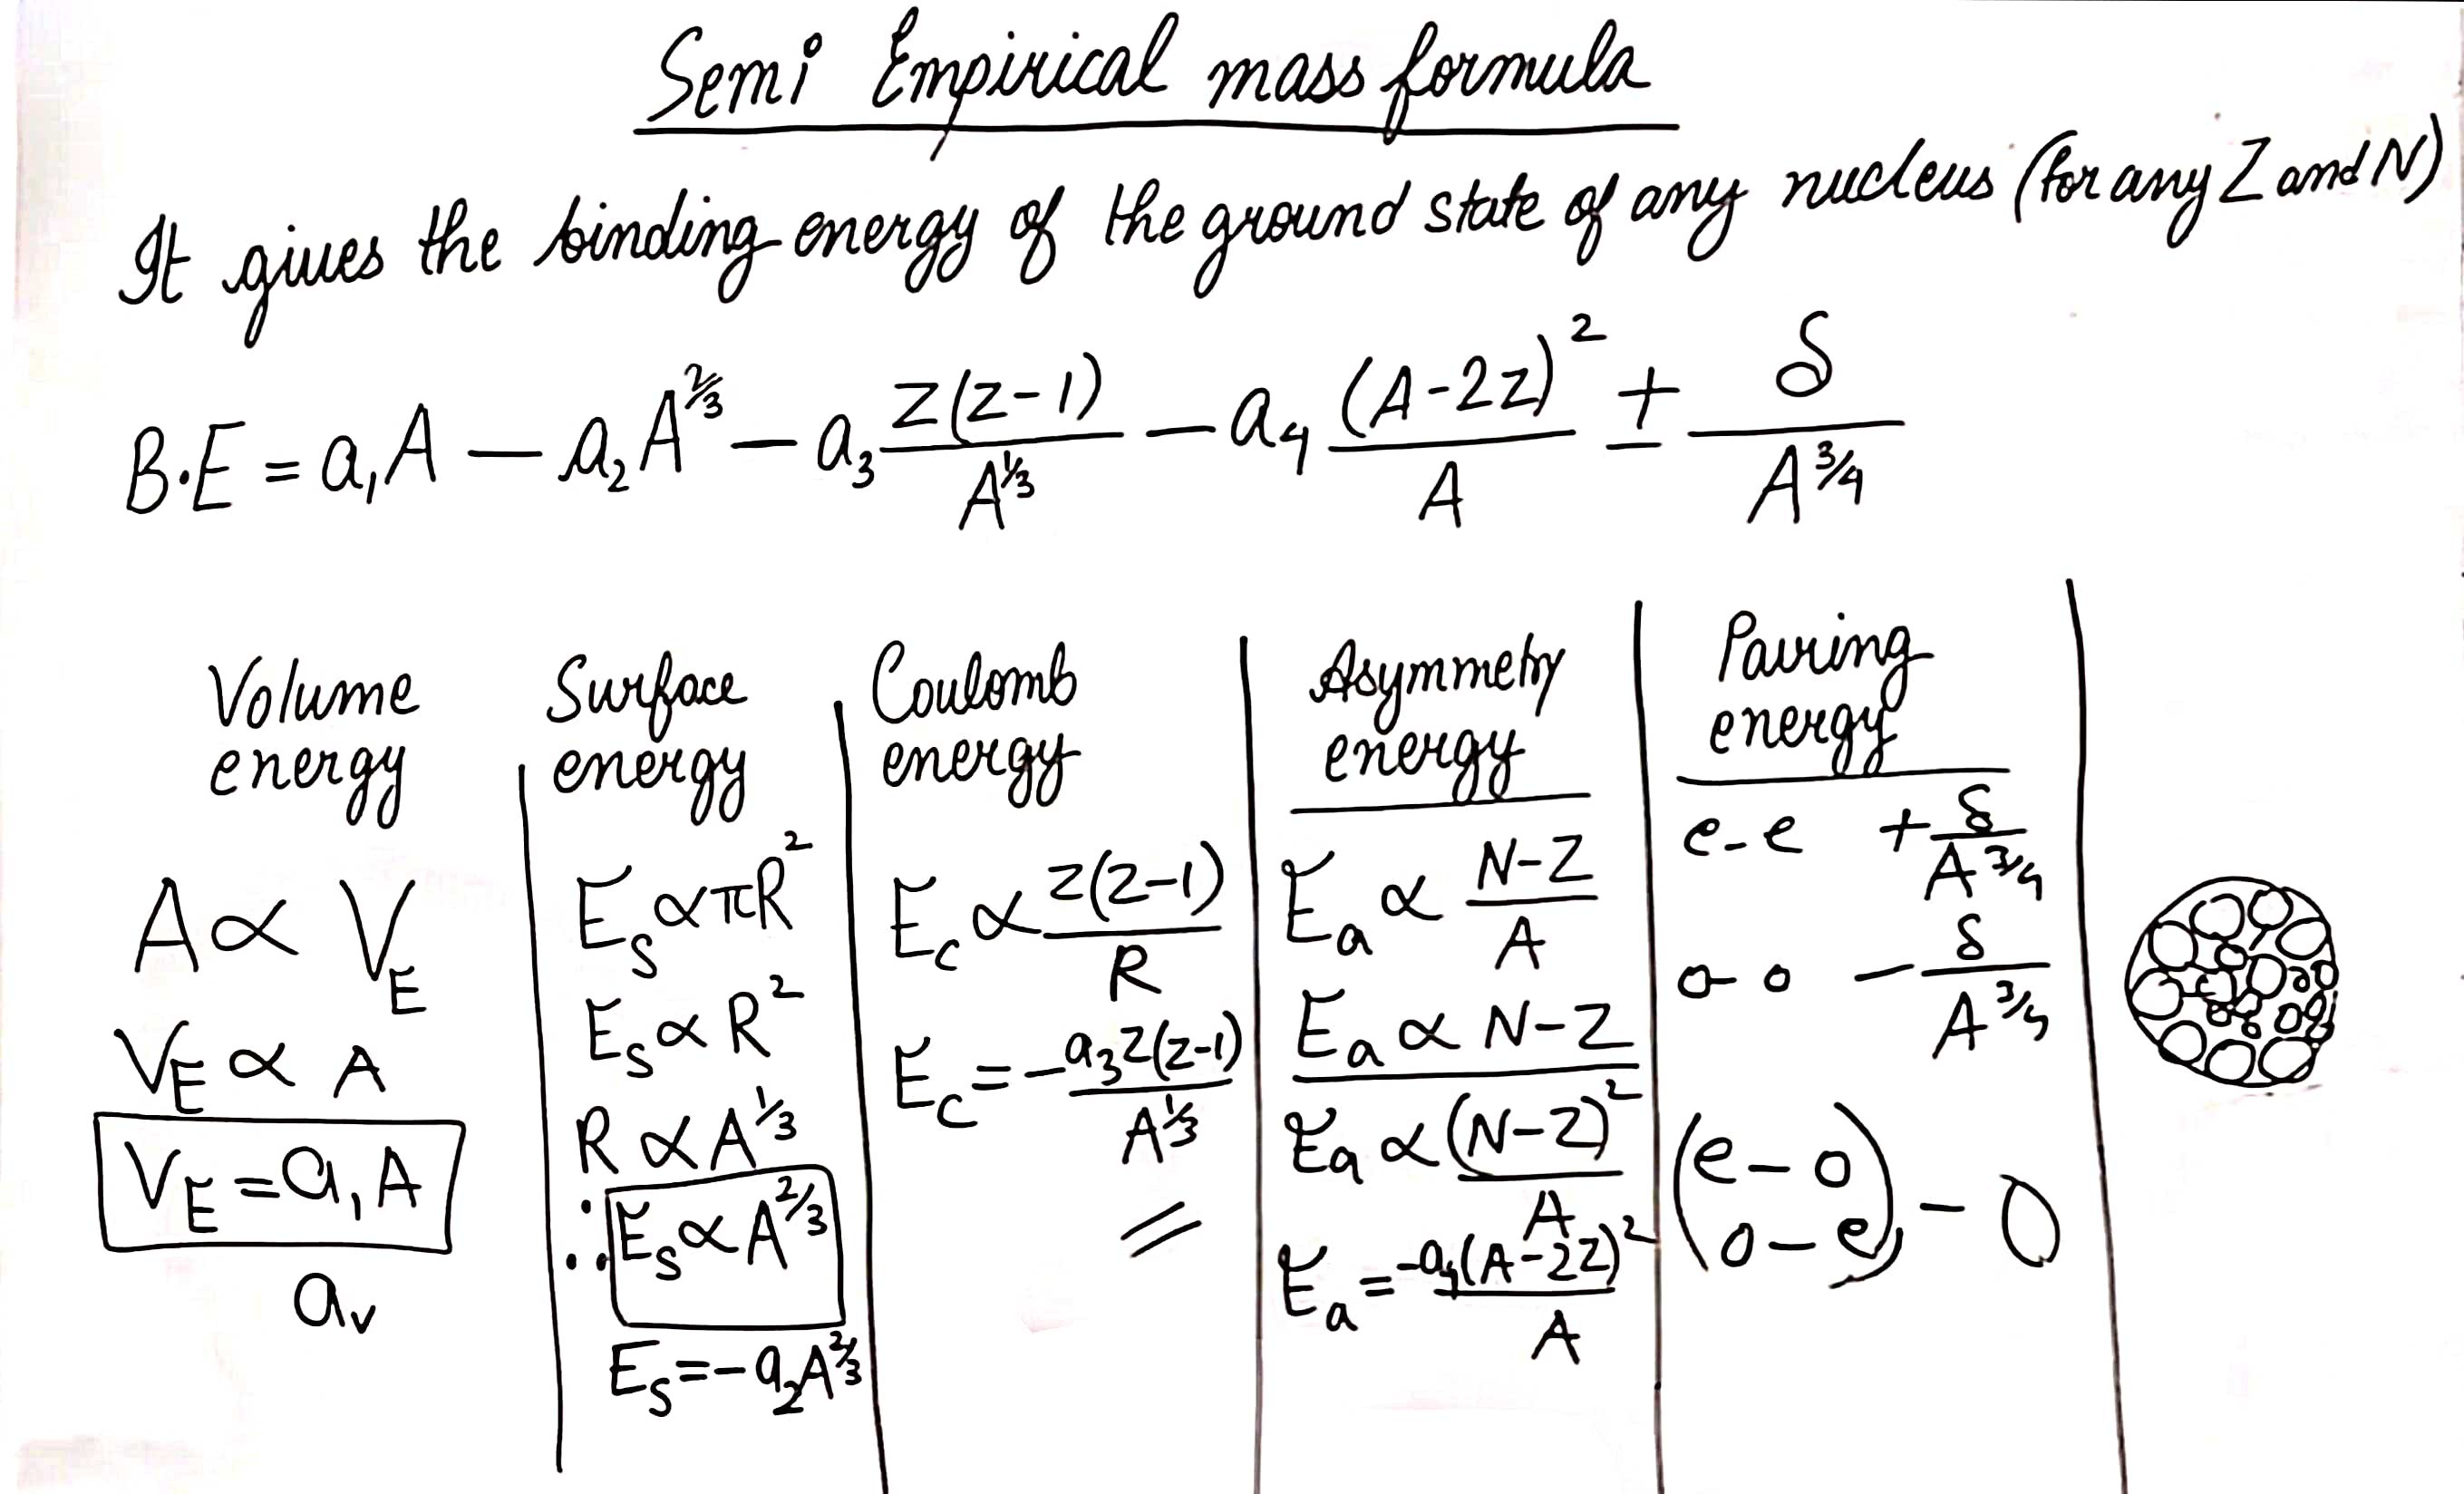 Semi Empirical mass formula
It gives the binding energy of the ground state of any nucleus (for any Z and N)
B.E = a₁A − a₂A^2/3 − a₃ Z(Z-1)/A^1/3 − a₄ (A-2Z)²/A ± δ/A^3/4
Volume
energy
A ∝ V_E
V_E ∝ A
V_E = a₁A
a_v
Surface
energy
E_s ∝ πR²
E_s ∝ R²
R ∝ A^1/3
∴ E_s ∝ A^2/3
E_s = −a₂A^2/3
Coulomb
energy
E_c ∝ Z(Z-1)/R
E_c = −a₃Z(Z-1)/A^1/3
Asymmetry
energy
E_a ∝ N-Z/A
E_a ∝ N-Z
E_a ∝ (N-Z)²/A
E_a = −a₄(A-2Z)²/A
Pairing
energy
e-e + δ/A^3/4
o-o − δ/A^3/4
(e-o
o-e) - 0